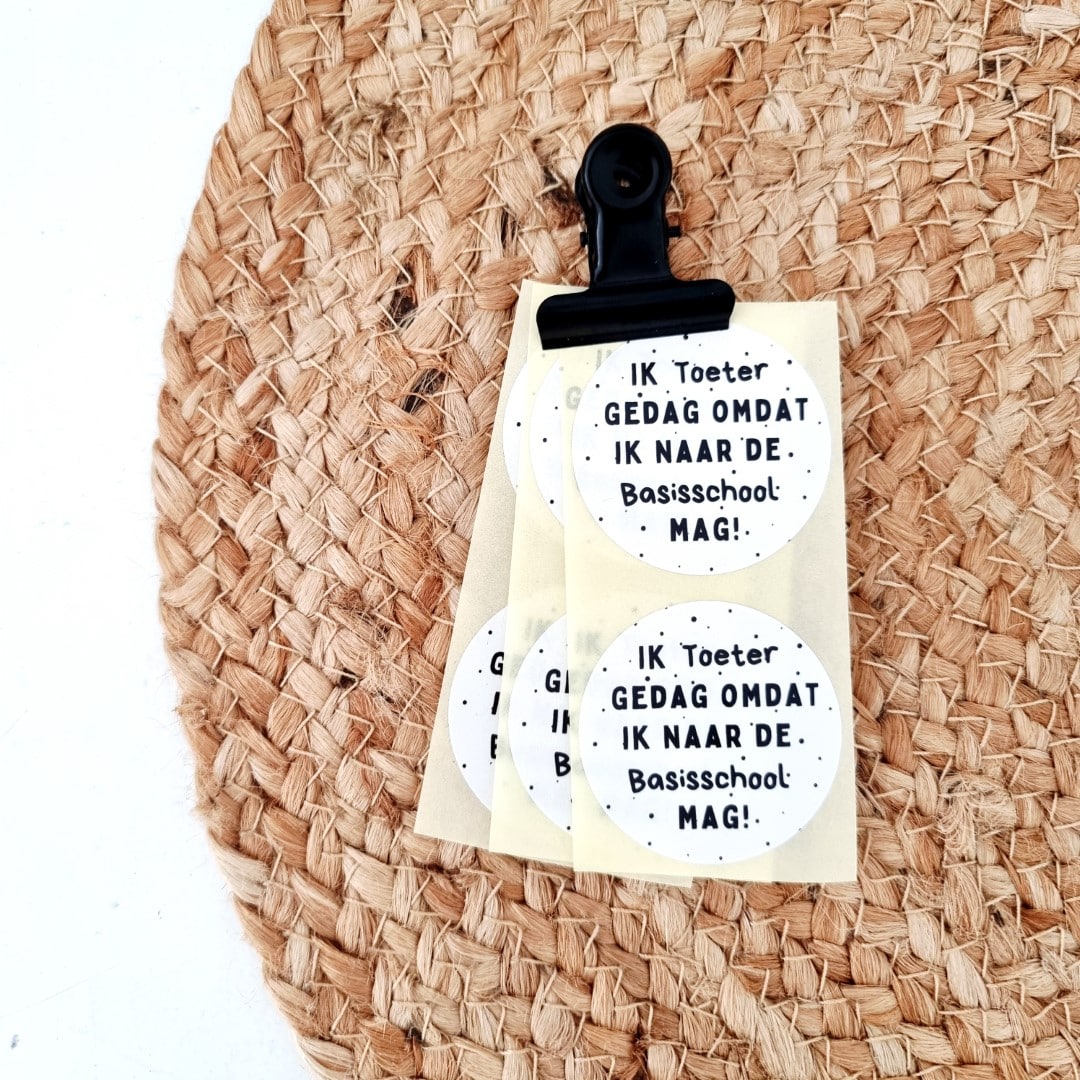 IK Toeter
GEDAG OMDAT
IK NAAR DE
Basisschool
MAG!
IK Toeter
GEDAG OMDAT
IK NAAR DE
Basisschool
MAG!